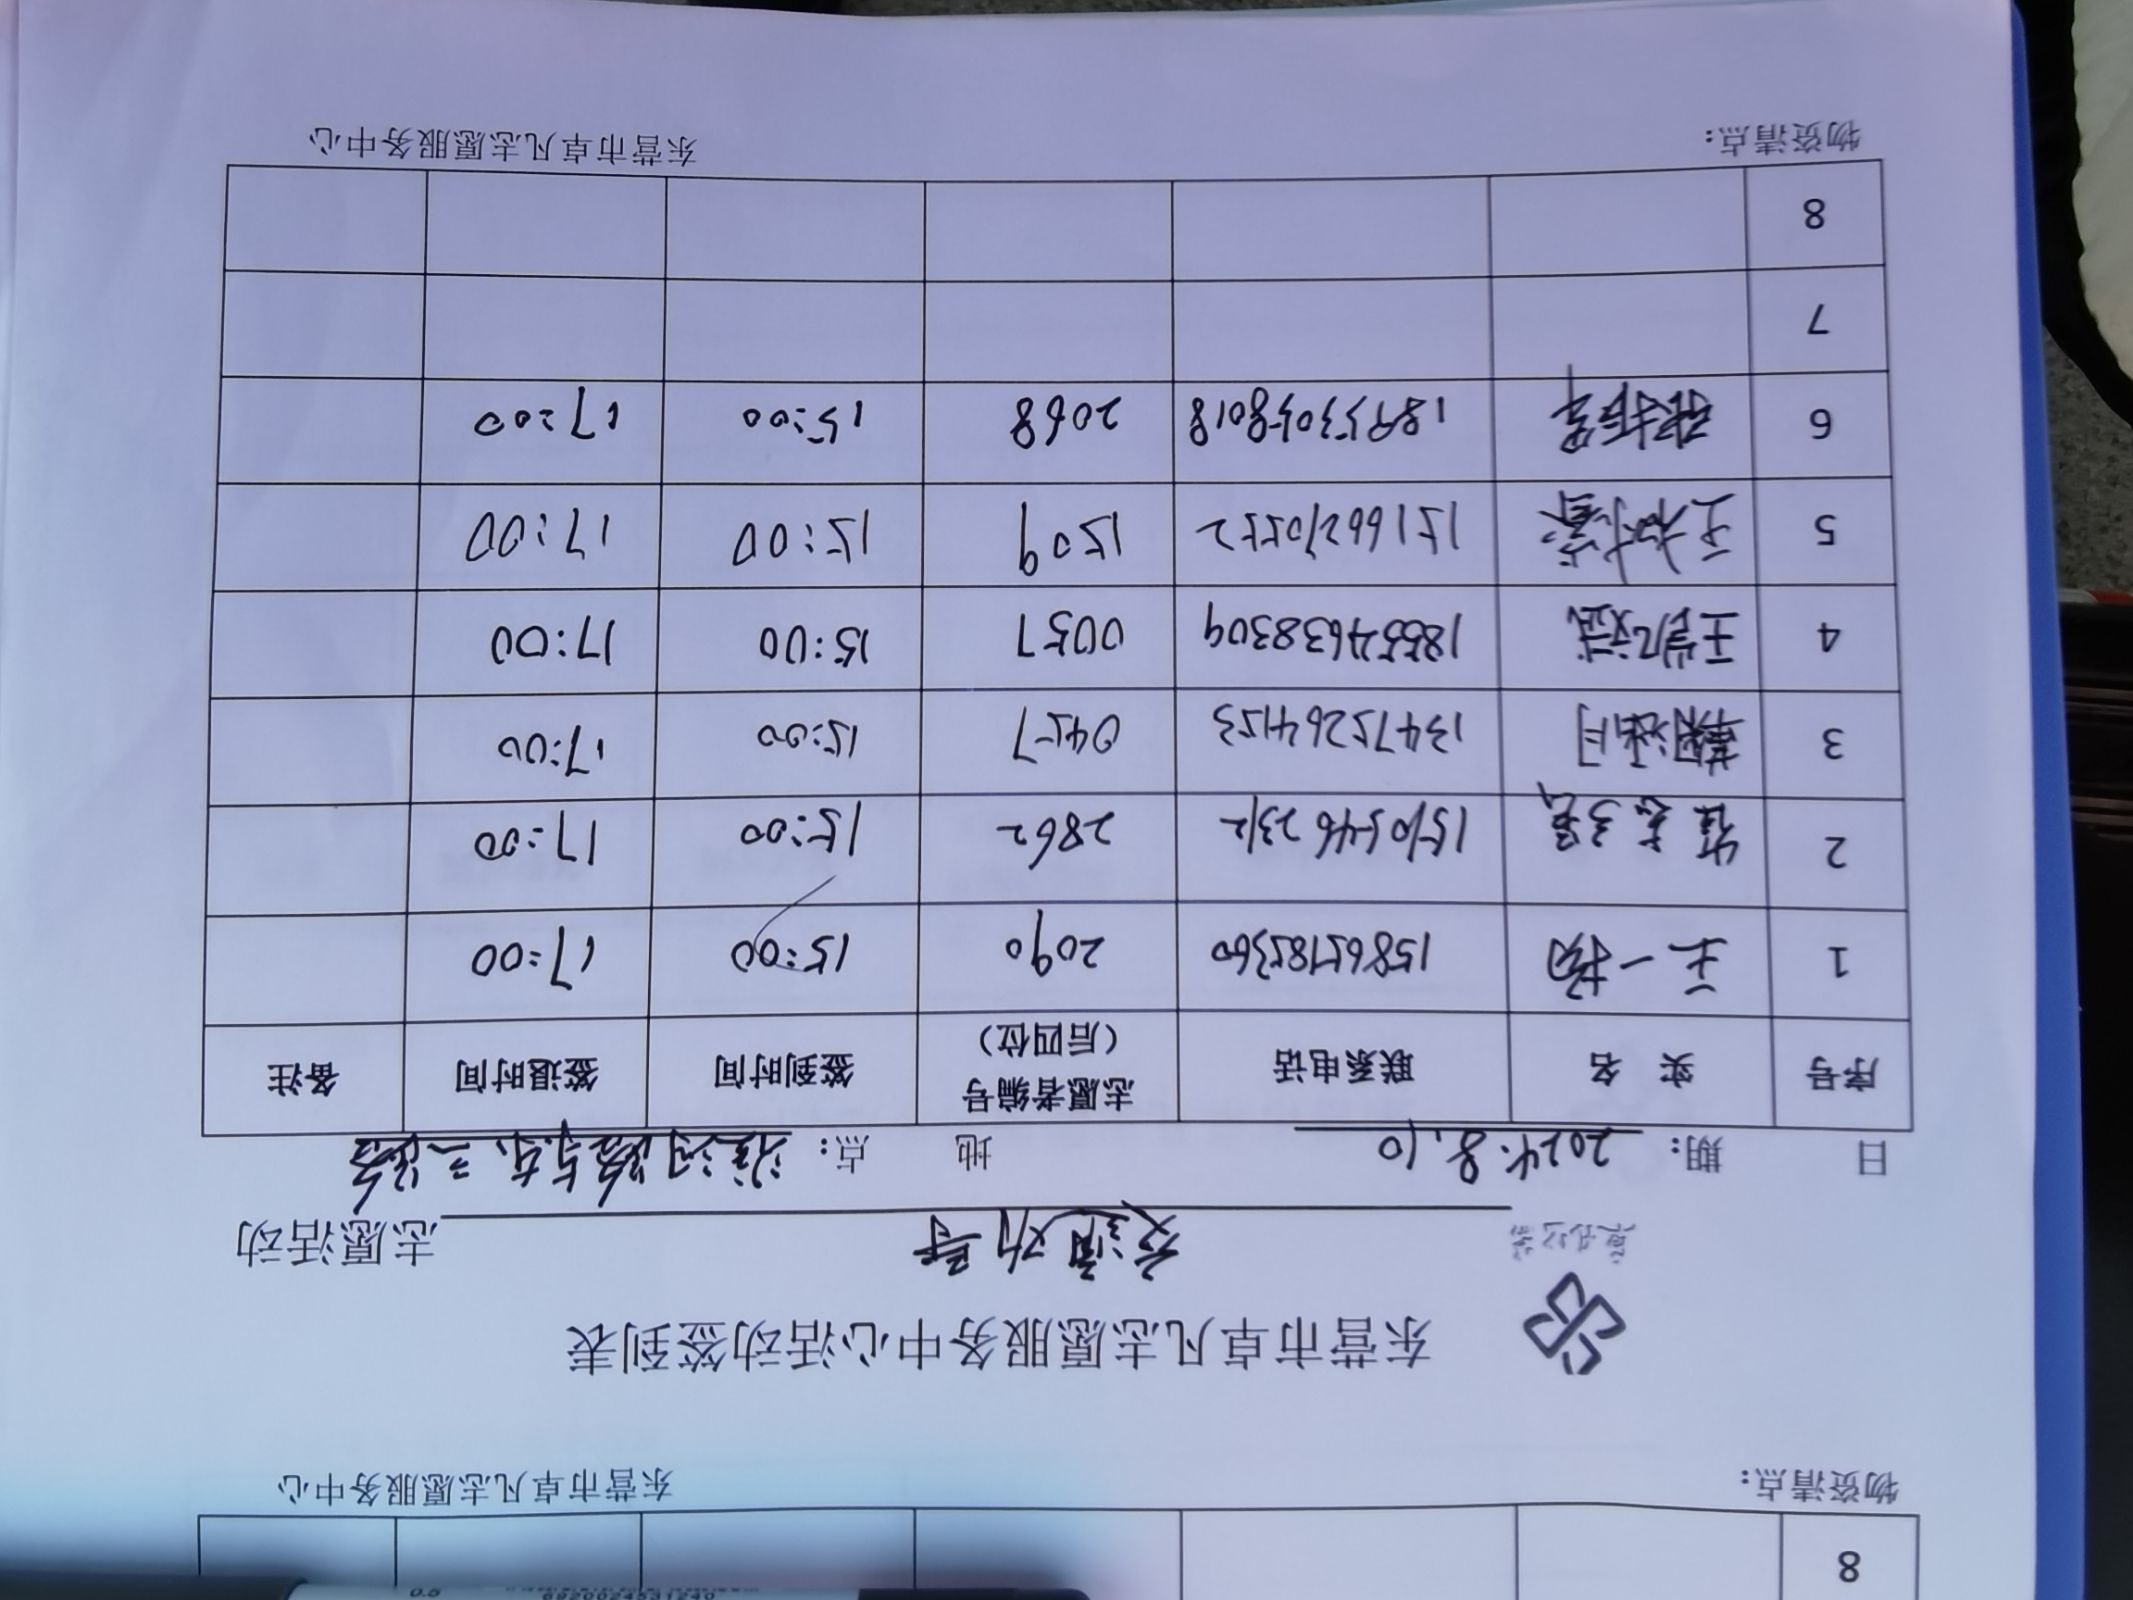 物资清点： 东营市卓凡志愿服务中心
东营市卓凡志愿服务中心活动签到表
交通劝导 志愿活动
日 期： 2024.8.10 地 点： 淮河路与东三路
序号 实 名 联系电话 志愿者编号（后四位） 签到时间 签退时间 备注
1 王一扬 15865785360 2090 15:00 17:00
2 15105462312 2862 15:00 17:00
3 韩涵月 13475264153 0457 15:00 17:00
4 王凯斌 18554638309 0057 15:00 17:00
5 15166270552 1509 15:00 17:00
6 18953058018 2068 15:00 17:00
7
8
物资清点： 东营市卓凡志愿服务中心
8
0.5
6920024531240